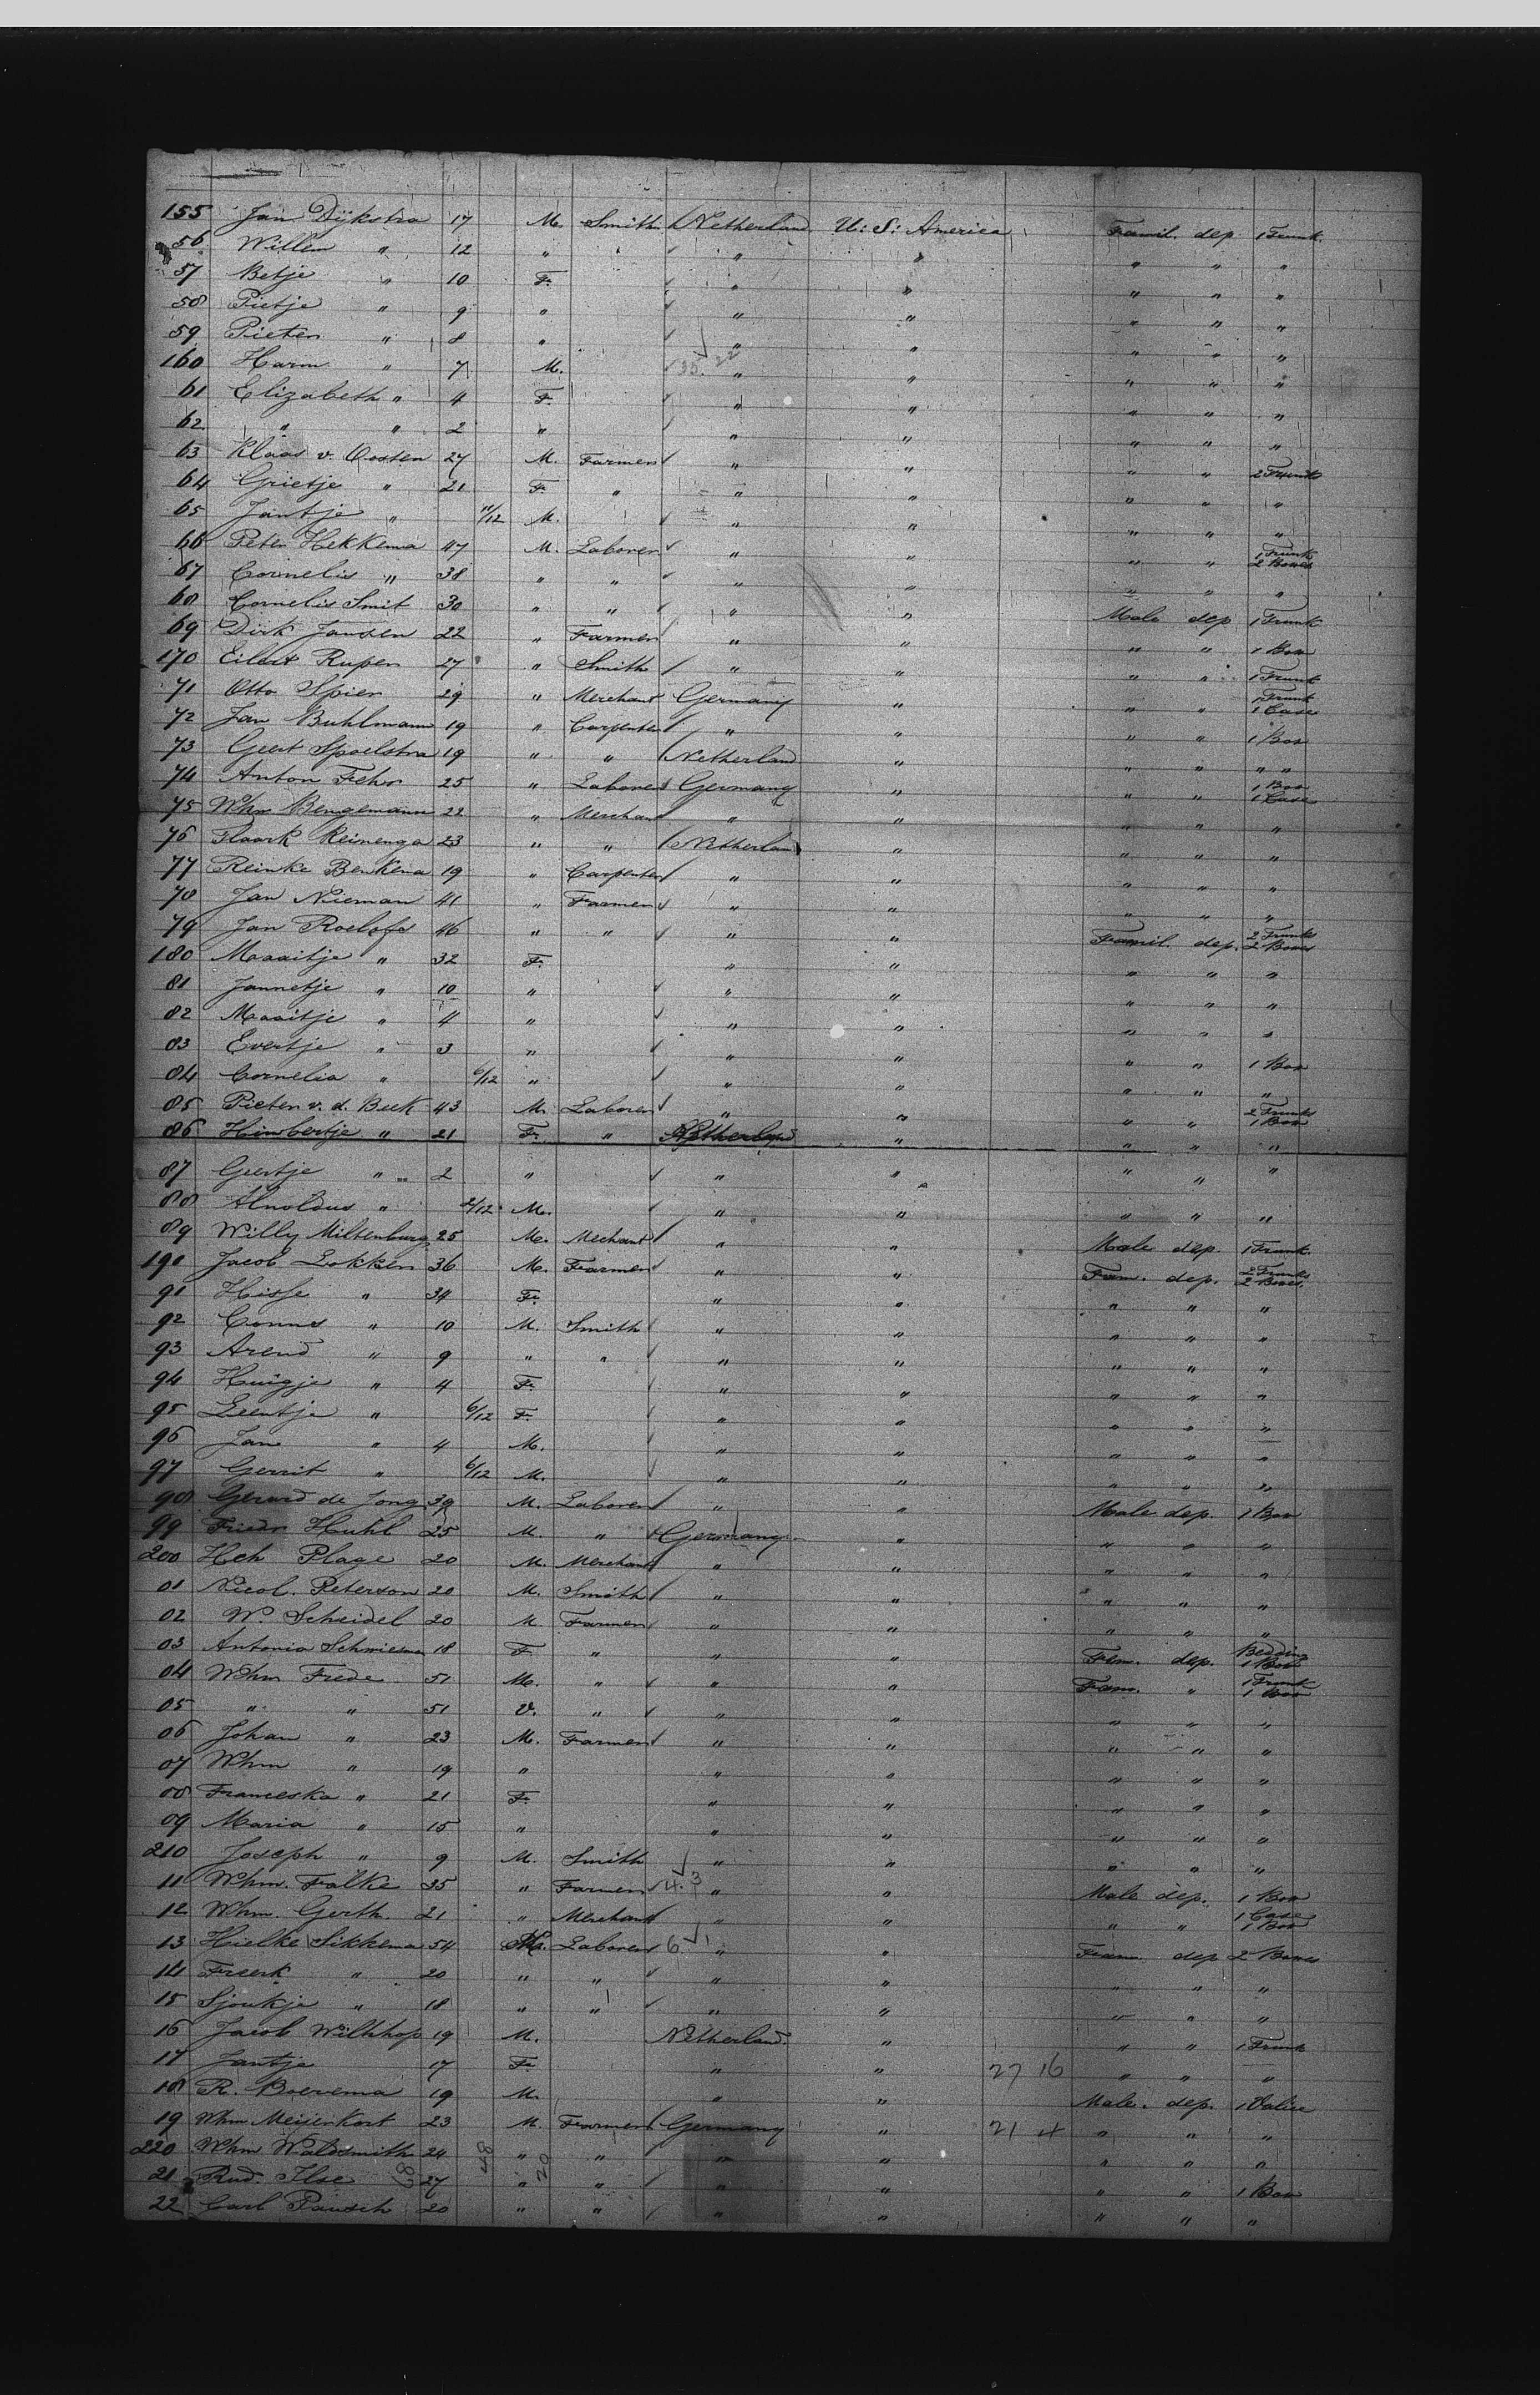 155 Jan Dijkstra 17 M. Smith Netherland U: S: America Famil. dep 1 Trunk
56 Willem " 12 " " " " " "
57 Betje " 10 F. " " " " "
58 Pietje " 9 " " " " " "
59 Pieter " 8 " " " " " "
160 Harm " 7 M. " " " " "
61 Elizabeth " 4 F. " " " " "
62 " " 2 " " " " " "
63 Klaas v. Oosten 27 M. Farmer " " " " 2 Trunks
64 Grietje " 21 F. " " " " " "
65 Jantje " 11/12 M. " " " " "
66 Peter Hekkema 47 M. Laborer " " " " 1 Trunk 2 Boxes
67 Cornelis " 38 " " " " " " "
68 Cornelis Smit 30 " " " " Male dep 1 Trunk
69 Dirk Jansen 22 " Farmer " " " " 1 Box
170 Eilert Ruper 27 " Smith " " " " 1 Trunk
71 Otto Spier 29 " Merchant Germany " " " 1 Trunk 1 Case
72 Jan Buhlmann 19 " Carpenter " " " " 1 Box
73 Geert Spoelstra 19 " " Netherland " " " " "
74 Anton Fehr 25 " Laborer Germany " " " 1 Box 1 Case
75 Whm Bengemann 22 " Merchant " " " " "
76 Reinenga 23 " " Netherland " " " "
77 Reinke Benkema 19 " Carpenter " " " " "
78 Jan Nieman 41 " Farmer " " " " "
79 Jan Roelofs 46 " " " " Famil. dep. 2 Trunks 2 Boxes
180 Maaitje " 32 F. " " " " "
81 Jannetje " 10 " " " " " "
82 Maaitje " 4 " " " " " "
83 Evertje " 3 " " " " " 1 Box
84 Cornelia " 6/12 " " " " " "
85 Pieter v. d. Beek 43 M. Laborer " " " " 2 Trunks 1 Box
86 " 21 F. " Netherland " " " "
87 Geertje " 2 " " " " " "
88 Arnoldus " 2/12 M. " " " " "
89 Willy Miltenburg 25 M. Mechant " " Male dep. 1 Trunk
190 Jacob Lokker 36 M. Farmer " " Fam. dep. 2 Trunks 2 Boxes
91 " 34 F. " " " " "
92 " 10 M. Smith " " " " "
93 Arend " 9 " " " " " " "
94 Huigje " 4 F. " " " " "
95 Leentje " 6/12 F. " " " " "
96 Jan " 4 M. " " " " "
97 Gerrit " 6/12 M. " " " " "
98 Gerard de Jong 39 M. Laborer " " Male dep. 1 Box
99 Friedr Huhl 25 M. " Germany " " " "
200 Hch Plage 20 M. Merchant " " " " "
01 Nicol. Peterson 20 M. Smith " " " " "
02 W. Scheidel 20 M Farmer " " " " "
03 Antonia 18 F " " " Fem. dep. Bedding 1 Box
04 Whm Frede 51 M. " " " Fam. " 1 Trunk 1 Box
05 " " 51 V. " " " " " "
06 Johan " 23 M. Farmer " " " " "
07 Whm " 19 " " " " " "
08 Franciska " 21 F. " " " " "
09 Maria " 15 " " " " " "
210 Joseph " 9 M. Smith " " " " "
11 Whm. Falke 35 " Farmer 4. 3 " " Male dep. 1 Box
12 Whm. Gerth. 21 " Merchant " " " " 1 Case 1 Box
13 Hielke Sikkema 54 M. Laborer 6 1 " " Fam. dep 2 Boxes
14 Freerk " 20 " " " " " " "
15 Sjoukje " 18 " " " " " " "
16 Jacob Wilkhop 19 M. Netherland. " " " 1 Trunk
17 Jantje 17 F. " " 27 16 " " "
18 R. Boerema 19 M. " " Male. dep. 1 Valise
19 Whm Meijerkort 23 M. Farmer Germany " 21 4 " " "
220 Whm Waldsmith 24 " " " " " " "
21 Rud. Ilse 27 " " " " " " 1 Box
22 Carl Pausch 20 " " " " " " "